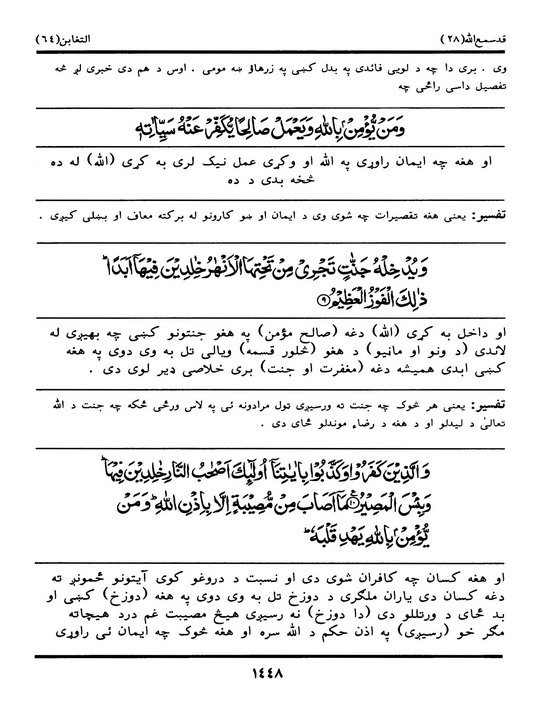 قدسمع الله(٢٨)
التغابن(٦٤)
وی . بری دا چه د لویی فائدی په بدل کښی په زرهاؤ ښه مومی . اوس د هم دی خبری لږ څه
تفصیل داسی راځی چه
وَمَنْ يُّؤْمِنْۢ بِاللّٰهِ وَيَعْمَلْ صَالِحًا يُّكَفِّرْ عَنْهُ سَيِّاٰتِهٖ
او هغه چه ایمان راوړی په الله او وکړی عمل نیک لری به کړی (الله) له ده
څخه بدی د ده
تفسیر: یعنی هغه تقصیرات چه شوی وی د ایمان او ښو کارونو له برکته معاف او بښلی کیږی .
وَيُدْخِلْهُ جَنّٰتٍ تَجْرِىْ مِنْ تَحْتِهَا الْاَنْهٰرُ خٰلِدِيْنَ فِيْهَاۤ اَبَدًا ؕ
ذٰلِكَ الْفَوْزُ الْعَظِيْمُ ۹
او داخل به کړی (الله) دغه (صالح مؤمن) په هغو جنتونو کښی چه بهیږی له
لاندی (د ونو او ماڼیو) د هغو (څلور قسمه) ویالی تل به وی دوی په هغه
کښی ابدی همیشه دغه (مغفرت او جنت) بری خلاصی ډیر لوی دی .
تفسیر: یعنی هر څوک چه جنت ته ورسیږی تول مرادونه ئی په لاس ورځی ځکه چه جنت د الله
تعالیٰ د لیدلو او د هغه د رضاء موندلو ځای دی .
وَالَّذِيْنَ كَفَرُوْا وَكَذَّبُوْا بِاٰيٰتِنَاۤ اُولٰٓئِكَ اَصْحٰبُ النَّارِ خٰلِدِيْنَ فِيْهَا ؕ
وَبِئْسَ الْمَصِيْرُ ۱۰ مَاۤ اَصَابَ مِنْ مُّصِيْبَةٍ اِلَّا بِاِذْنِ اللّٰهِ ؕ وَمَنْ
يُّؤْمِنْۢ بِاللّٰهِ يَهْدِ قَلْبَهٗ ؕ
او هغه کسان چه کافران شوی دی او نسبت د دروغو کوی آیتونو ځمونږ ته
دغه کسان دی یاران ملګری د دوزخ تل به وی دوی په هغه (دوزخ) کښی او
بد ځای د ورتللو دی (دا دوزخ) نه رسیږی هیڅ مصیبت غم درد هیچاته
مګر خو (رسیږی) په اذن حکم د الله سره او هغه څوک چه ایمان ئی راوړی
١٤٤٨